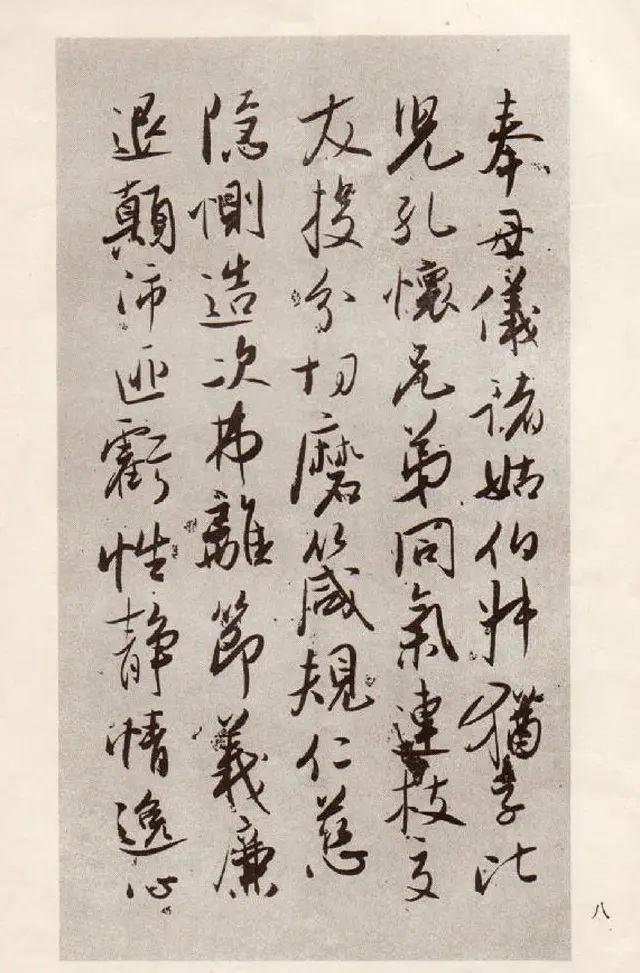 奉母儀諸姑伯叔猶子比
兒孔懷兄弟同氣連枝交
友投分切磨箴規仁慈
隱惻造次弗離節義廉
退顛沛匪虧性静情逸心
八